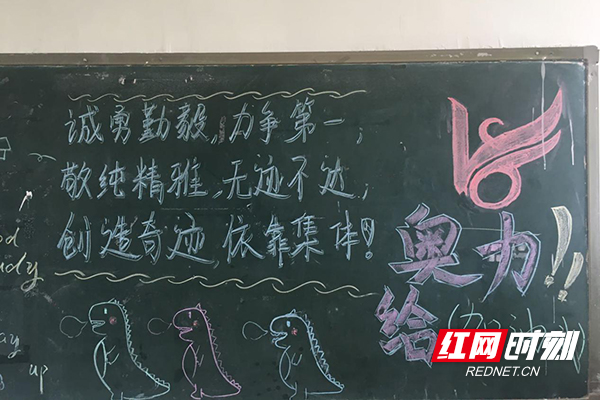 诚勇勤毅,力争第一;
敬纯精雅,无迹不达;
创造奇迹,依靠集体!
奥力!!
给
up
红网时刻
REDNET.CN